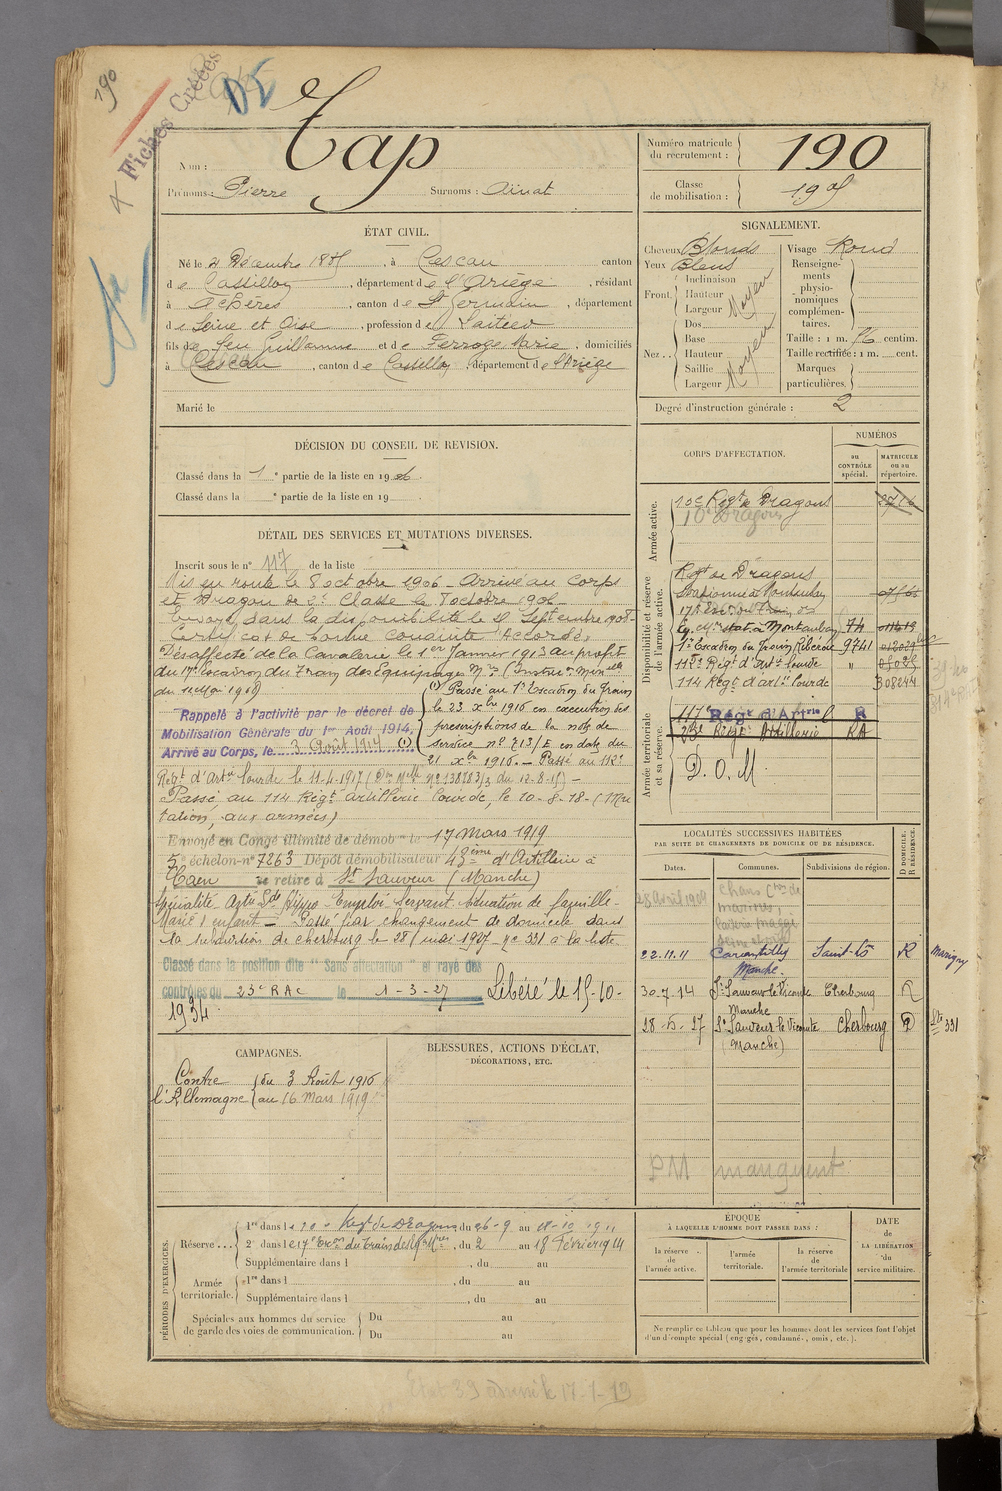 190
Fiches Créées
DE
Nom : Tap
Prénoms : Pierre Surnoms : Ainat
Numéro matricule
du recrutement : 190
Classe
de mobilisation : 1905
ÉTAT CIVIL.
Né le 2 Décembre 1885, à Cescau canton
de Castillon, département de l'Ariège, résidant
à Achères, canton de St Germain, département
de Seine et Oise, profession de Laitier
fils de feu Guillaume et de Ferrage Marie, domiciliés
à Cescau, canton de Castillon, département de l'Ariège
Marié le
SIGNALEMENT.
Cheveux Blonds
Yeux Bleus
Front. Inclinaison
Hauteur
Largeur
Moyen
Nez .. Dos
Base
Hauteur
Saillie
Largeur
Moyen
Visage Rond
Renseigne-
ments
physio-
nomiques
complémen-
taires.
Taille : 1 m. 56 centim.
Taille rectifiée : 1 m. cent.
Marques
particulières.
Degré d'instruction générale : 2
DÉCISION DU CONSEIL DE REVISION.
Classé dans la 1e partie de la liste en 1906.
Classé dans la e partie de la liste en 19
DÉTAIL DES SERVICES ET MUTATIONS DIVERSES.
Inscrit sous le n° 117 de la liste
Mis en route le 8 octobre 1906 - Arrivé au Corps
et Dragon de 2e Classe le 8 octobre 1906
Envoyé dans la disponibilité le 25 Septembre 1908
Certificat de bonne conduite Accordé.
Désaffecté de la Cavalerie le 1er Janvier 1913 au profit
du 17e Escadron du Train des Equipages Mres (Instron Minelle
du 1909)
Rappelé à l'activité par le décret de
Mobilisation Générale du 1er Août 1914,
Arrivé au Corps, le 3 Août 1914 (1)
(1) Passé au 1er Escadron du Train
le 23 xbre 1916 en exécution des
prescriptions de la note de
service n° 713/E en date du
21 xbre 1916. - Passé au 112e
Régt d'Artie Lourde le 11-4-1917
Passé au 114 Régt Artillerie Lourde, le 10-8-18 - (Mu
tation, aux armées)
Envoyé en Congé illimité de démob. le 17 Mars 1919
5e échelon-n° 7263 Dépôt démobilisateur 43ème d'Artillerie à
Caen se retire à St Sauveur (Manche)
Spécialité Artie Lde Hippo Emploi Servant Situation de famille
Marié 1 enfant - Passé par changement de domicile dans
la subdivion de Cherbourg le 28 mai 1927 - N° 331 à la liste.
Classé dans la position dite "Sans affectation" et rayé des
contrôles du 23e RAC le 1-3-27 Libéré le 15-10-
1934
CORPS D'AFFECTATION.
NUMÉROS
au
CONTRÔLE
spécial.
MATRICULE
ou au
répertoire.
Armée active.
10e Régt de Dragons 2716
10e Dragons
Disponibilité et réserve
de l'armée active.
Régt de Dragons
stationné à Montauban
17e Esc. du Train des
Eq. Mres stat. à Montauban 74
1er Escadron du Train 9741
112e Régt d'Artie lourde "
114 Régt d'Artie Lourde 308244
Armée territoriale
et sa réserve.
117e Régt d'Artrie R
Régt Artillerie RA
D. O. M.
LOCALITÉS SUCCESSIVES HABITÉES
PAR SUITE DE CHANGEMENTS DE DOMICILE OU DE RÉSIDENCE.
Dates. Communes. Subdivisions de région. D DOMICILE. R RÉSIDENCE.
28 avril 1909
22.11.11 Carantilly Saint-Lô R Marigny
Manche.
30-7-14 St Sauveur le Vicomte Cherbourg R
Manche
28-5-27 St Sauveur le Vicomte Cherbourg D Lte 331
(Manche)
PM manquent
CAMPAGNES.
Contre
l'Allemagne
du 3 Août 1916
au 16 Mars 1919
BLESSURES, ACTIONS D'ÉCLAT,
DÉCORATIONS, ETC.
PÉRIODES D'EXERCICES.
Réserve ... 1re dans le 10e Régt de Dragons du 26-9 au 18-10 1911
2e dans le 17e Eson du Train des Eq. Mres, du 2 au 18 Février 1914
Supplémentaire dans l , du au
Armée
territoriale.
1re dans l , du au
Supplémentaire dans l , du au
Spéciales aux hommes du service
de garde des voies de communication.
Du au
Du au
ÉPOQUE
À LAQUELLE L'HOMME DOIT PASSER DANS :
la réserve
de
l'armée active.
l'armée
territoriale.
la réserve
de
l'armée territoriale
DATE
de
LA LIBÉRATION
du
service militaire.
Ne remplir ce tableau que pour les hommes dont les services font l'objet
d'un décompte spécial (engagés, condamnés, omis, etc.).
Etat 39 17-1-19